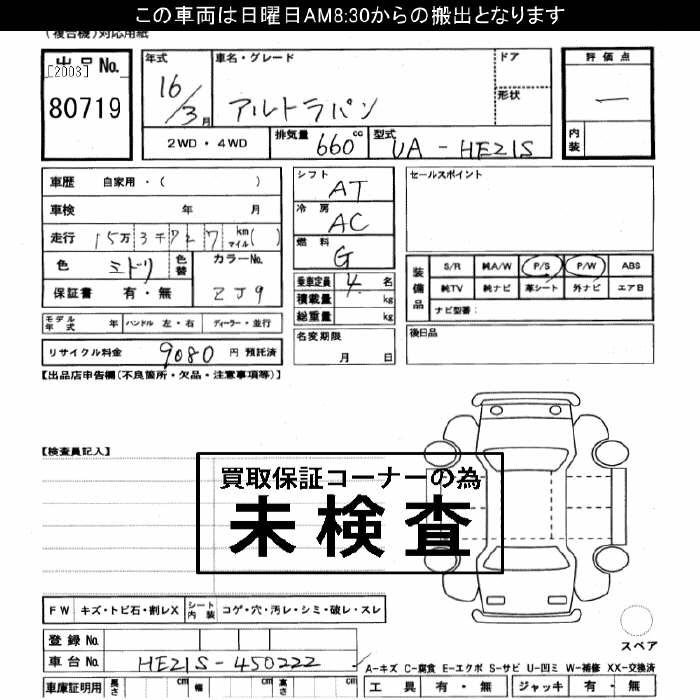 この車両は日曜日AM8:30からの搬出となります
(複合機)対応用紙
出品No.
[2003]
80719
年式
16/3月
車名・グレード
アルトラパン
ドア
形状
評価点
―
内装
2WD・4WD
排気量 660 cc
型式 UA-HE21S
車歴 自家用・( )
車検 年 月
走行 15万3千727 km マイル( )
色 ミドリ 色替
カラーNo. ZJ9
保証書 有・無
シフト AT
冷房 AC
燃料 G
乗車定員 4名
積載量 kg
総重量 kg
セールスポイント
装備品
S/R 純A/W P/S P/W ABS
純TV 純ナビ 革シート 外ナビ エアB
ナビ型番:
モデル年式 年 ハンドル 左・右 ディーラー・並行
名変期限
月 日
後日品
リサイクル料金 9080 円 預託済
【出品店申告欄(不良箇所・欠品・注意事項等)】
【検査員記入】
買取保証コーナーの為
未検査
FW キズ・トビ石・割レX シート内装 コゲ・穴・汚レ・シミ・破レ・スレ
スペア
登録No.
車台No. HE21S-450222
A-キズ C-腐食 E-エクボ S-サビ U-凹ミ W-補修 XX-交換済
車庫証明用 長さ cm 幅 cm 高さ cm
工具 有・無 ジャッキ 有・無